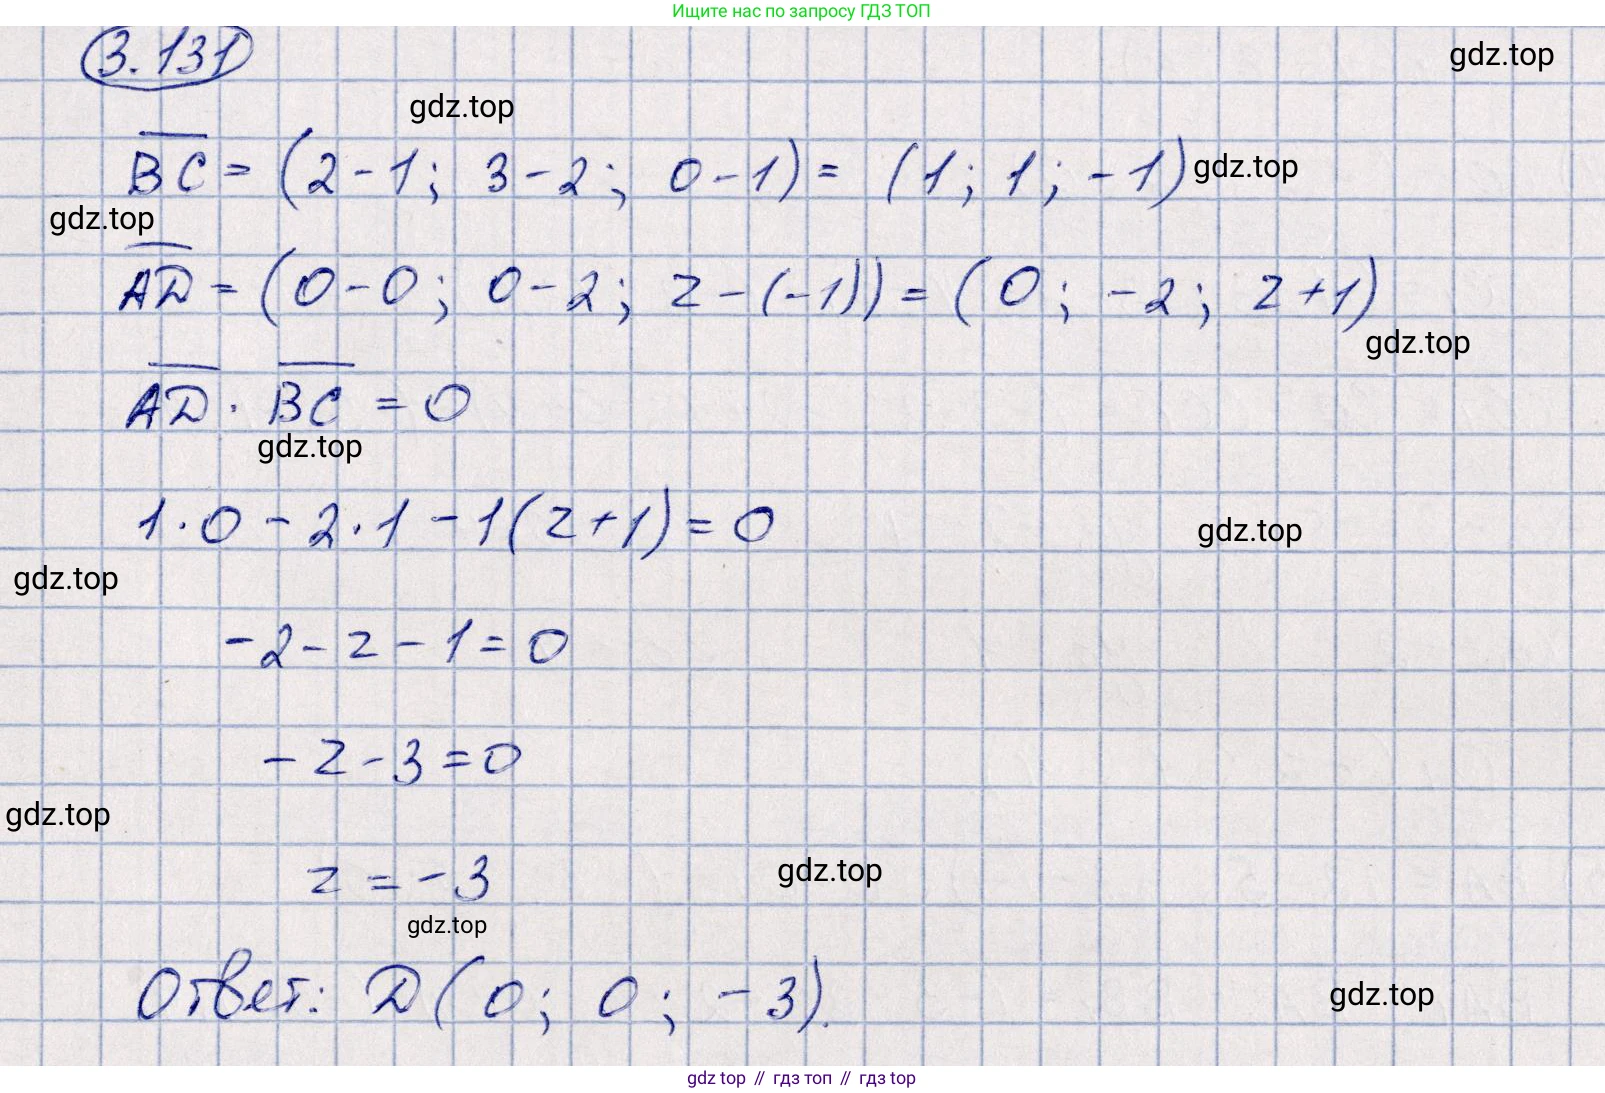 Ищите нас по запросу ГДЗ ТОП
3.131
gdz.top
gdz.top
BC = (2 - 1; 3 - 2; 0 - 1) = (1; 1; -1)
gdz.top
gdz.top
AD = (0 - 0; 0 - 2; z - (-1)) = (0; -2; z + 1)
gdz.top
AD · BC = 0
gdz.top
1 · 0 - 2 · 1 - 1(z + 1) = 0
gdz.top
gdz.top
-2 - z - 1 = 0
-z - 3 = 0
gdz.top
z = -3
gdz.top
gdz.top
Ответ: D(0; 0; -3).
gdz.top
gdz top // гдз топ // гдз top